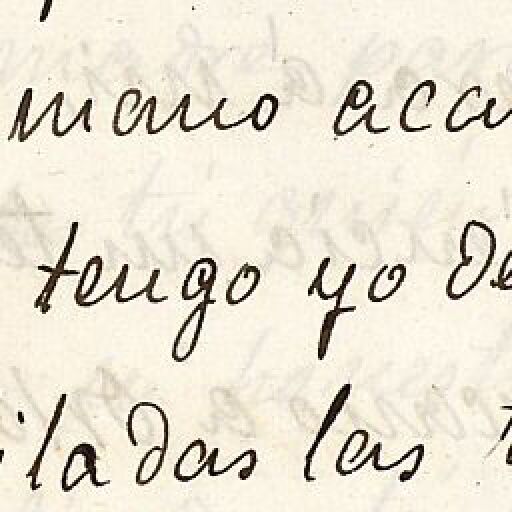 mano aca
tengo yo de
iladas las t